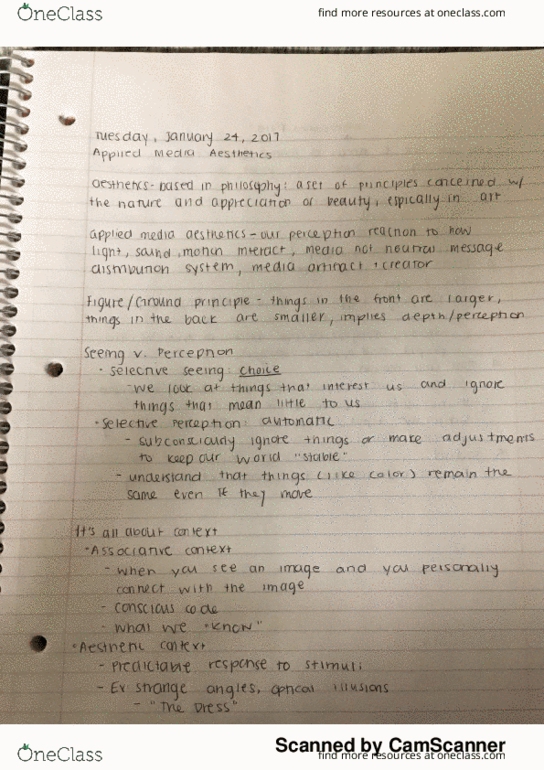 OneClass
find more resources at oneclass.com
Tuesday, January 24, 2017
Applied Media Aesthetics
aesthetics- based in philosophy: a set of principles concerned w/
the nature and appreciation of beauty, espically in art
applied media aesthetics - our perception reaction to how
light, sound, motion interact, media not neutral message
distribution system, media artifact + creator
Figure/Ground principle - things in the front are larger,
things in the back are smaller, implies depth/perception
Seeing v. Perception
• selective seeing: choice
- we look at things that interest us and ignore
things that mean little to us
• Selective perception: automatic
- subconsciously ignore things or make adjustments
to keep our world "stable"
- understand that things (like color) remain the
same even if they move
It's all about context
• Associative context
- when you see an image and you personally
connect with the image
- conscious code
- what we "know"
• Aesthetic context
- Predictable response to stimuli
- Ex strange angles, optical illusions
- "The Dress"
Scanned by CamScanner
OneClass
find more resources at oneclass.com